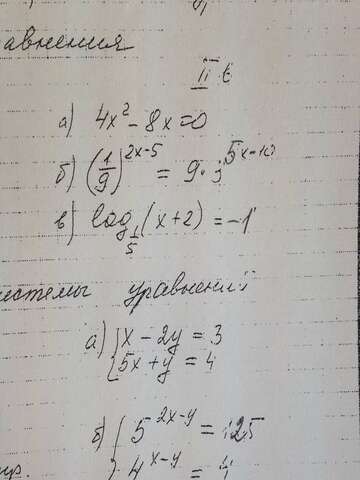 авнения
II в
а) 4x² - 8x = 0
б) (1/9)^(2x-5) = 9 · 3^(5x-10)
в) log_(1/5) (x+2) = -1
истемы уравнений
а) { x - 2y = 3
{ 5x + y = 4
б) { 5^(2x-y) = 125
{ 4^(x-y) = 4